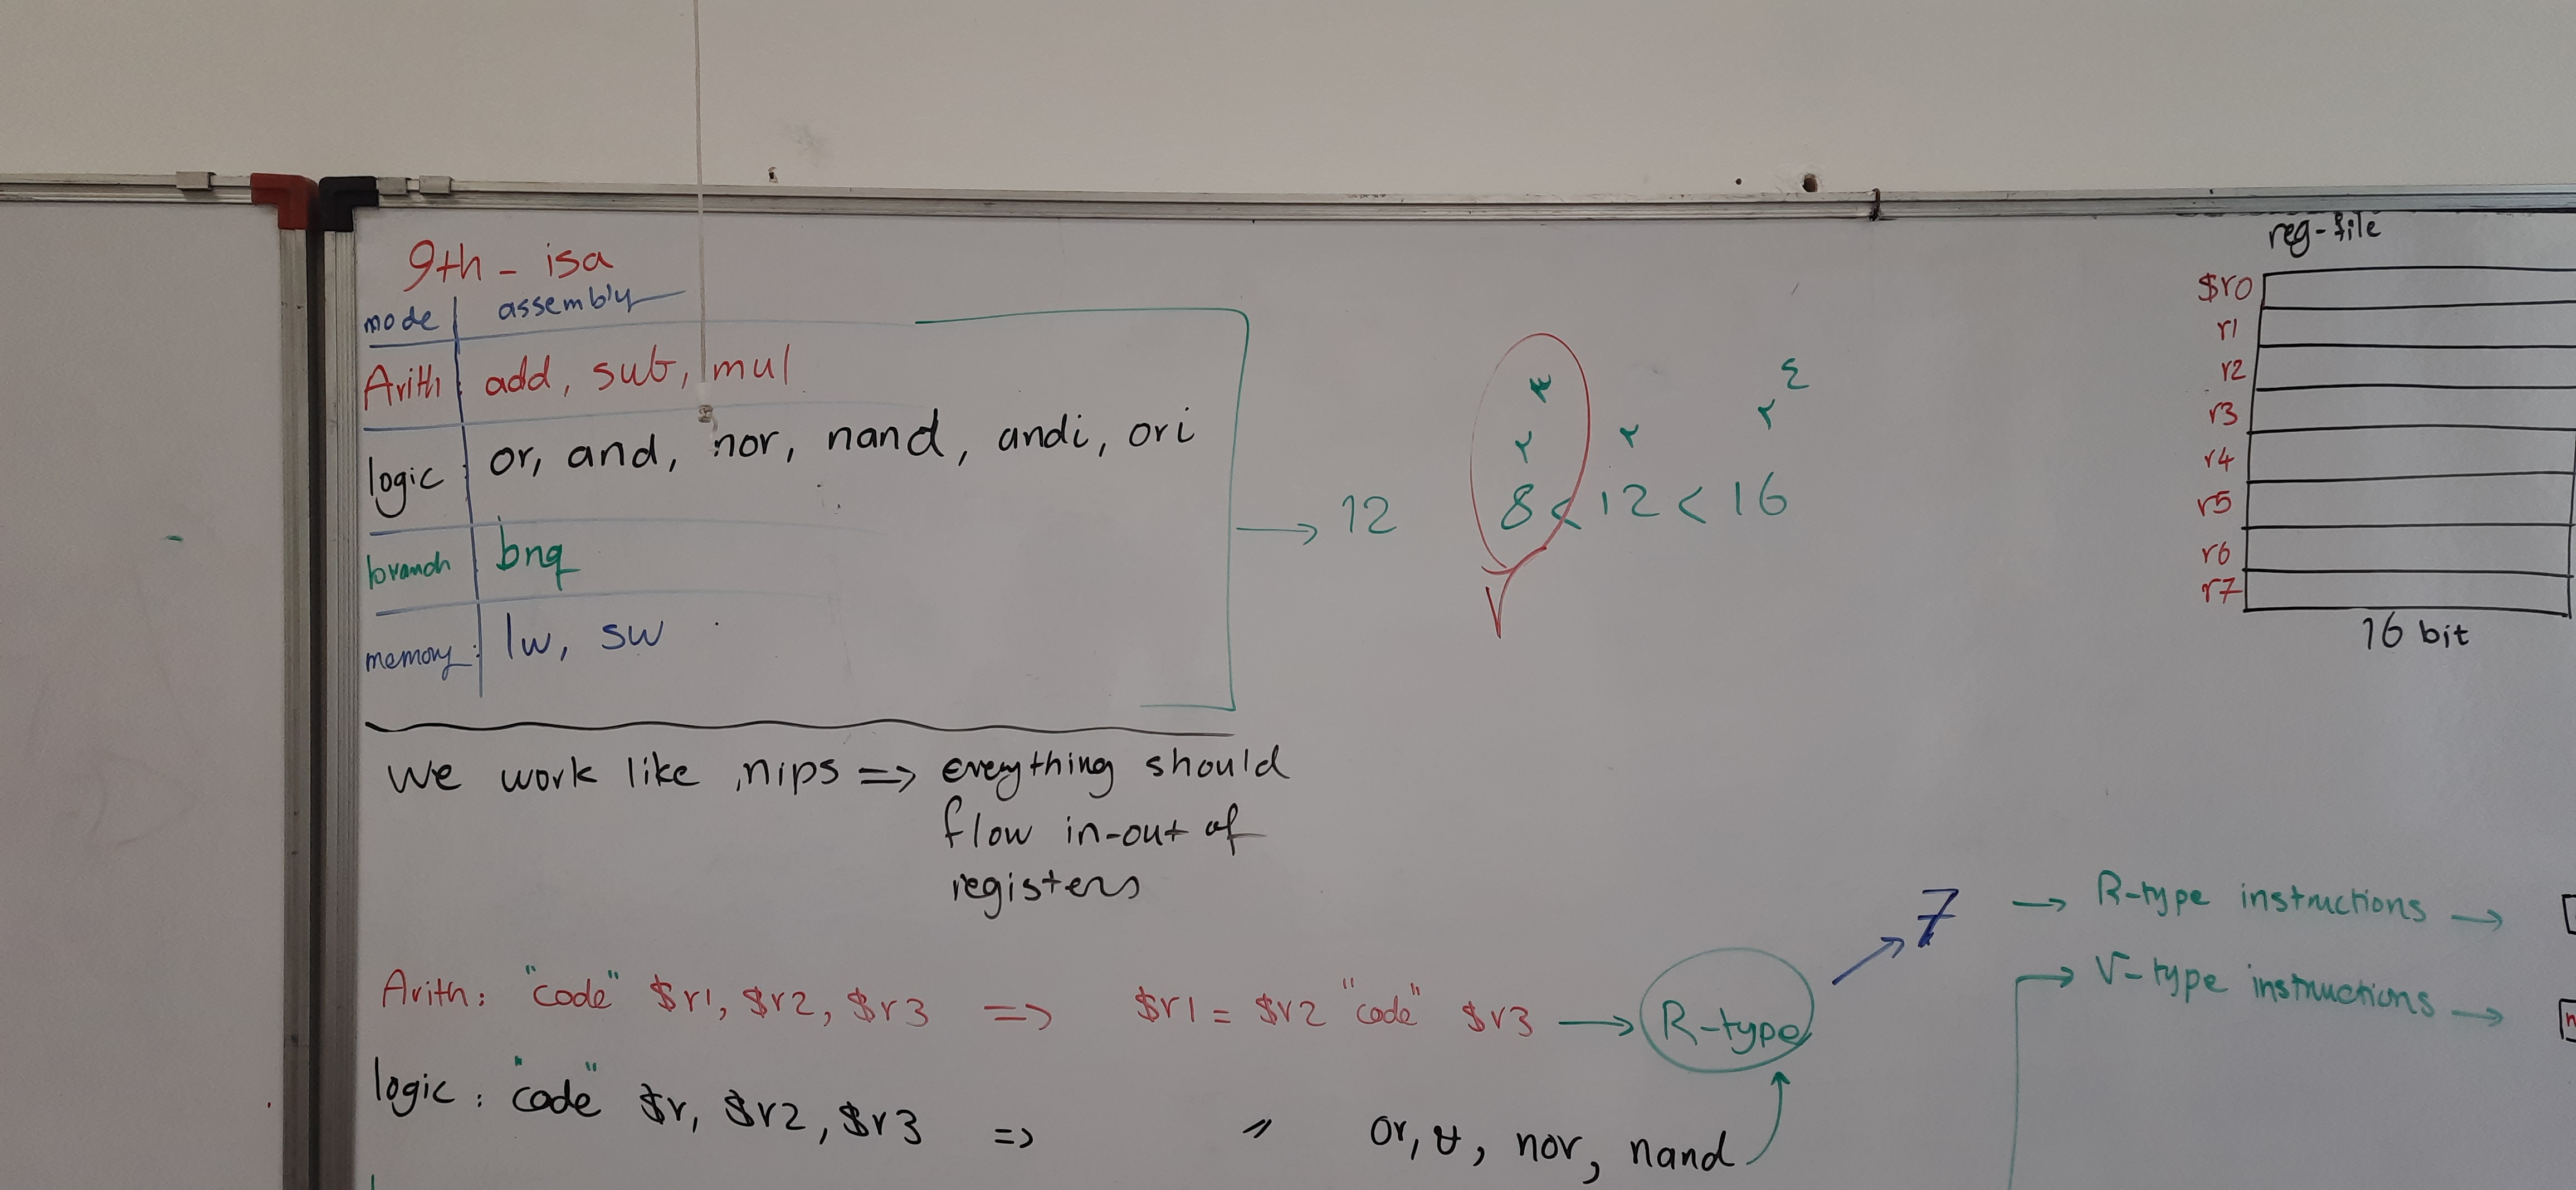 9th - isa
mode assembly
Arith add, sub, mul
logic : or, and, nor, nand, andi, ori
branch bnq
memory : lw, sw
→ 12
٣ ٤
٢ ٢ ٢
8 < 12 < 16
reg-file
$r0
r1
r2
r3
r4
r5
r6
r7
16 bit
We work like mips => everything should
flow in-out of
registers
Arith: "code" $r1, $r2, $r3 => $r1 = $r2 "code" $r3 → R-type
7 → R-type instructions →
→ V-type instructions →
logic : "code" $r, $r2, $r3 => " or, nor, nand